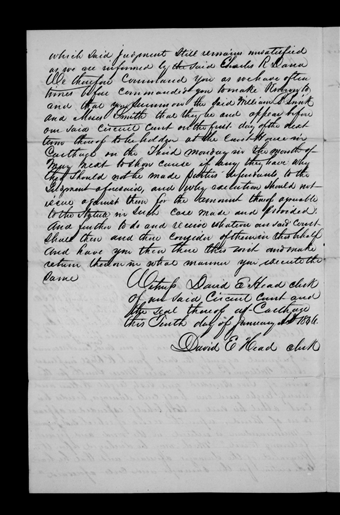 which said judgment Still remains unsatisfied
as we are informed by the said Charles R Dana
We therefore Command you as we have often
times before commanded you to make Known to
and that you Summon the said William
and Smith that they be and appear before
our said Circuit Court on the first day of the next
term thereof to be holden at the Court House in
Carthage on the Third monday in the month of
May next to show cause if any they have why
they Should not be made parties defendants to the
Judgment aforesaid, and why execution Should not
issue against them for the amount thereof agreeable
to the Statute in Such case made and provided.
And further to do and receive whatever our said Court
Shall then and there consider of them in this behalf
And have you then there this writ and make
return thereon in what manner you execute the
Same
Witness David E Head clerk
of our Said Circuit Court and
the seal thereof at Carthage
this Tenth day of January
David E Head clerk